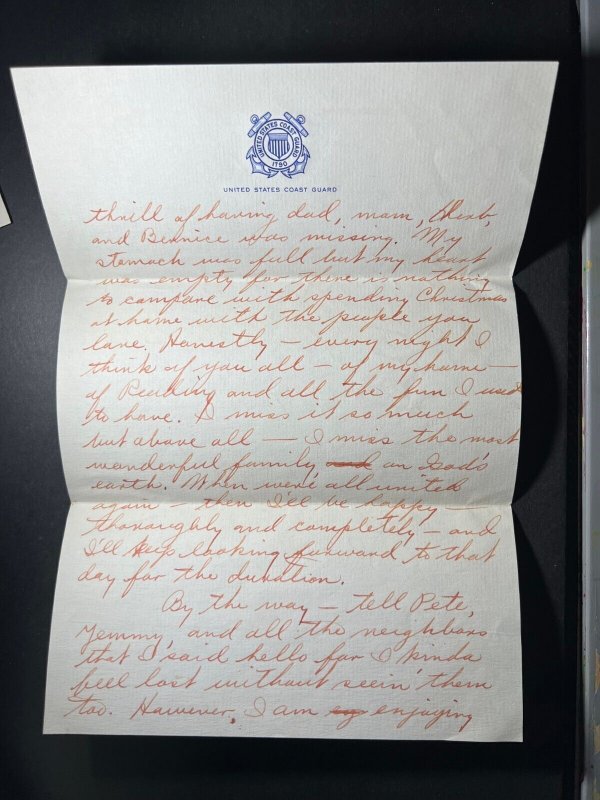 UNITED STATES COAST GUARD
1790
UNITED STATES COAST GUARD
thrill of having dad, mom, Herb,
and Bernice was missing. My
stomach was full but my heart
was empty for there is nothing
to compare with spending Christmas
at home with the people you
love. Honestly — every night I
think of you all — of my home —
of Reading and all the fun I used
to have. I miss it so much
but above all — I miss the most
wonderful family and on God's
earth. When we're all united
again — then I'll be happy
thoroughly and completely — and
I'll keep looking forward to that
day for the duration.
By the way — tell Pete,
Jemmy, and all the neighbors
that I said hello for I kinda
feel lost without seein' them
too. However, I am enjoying